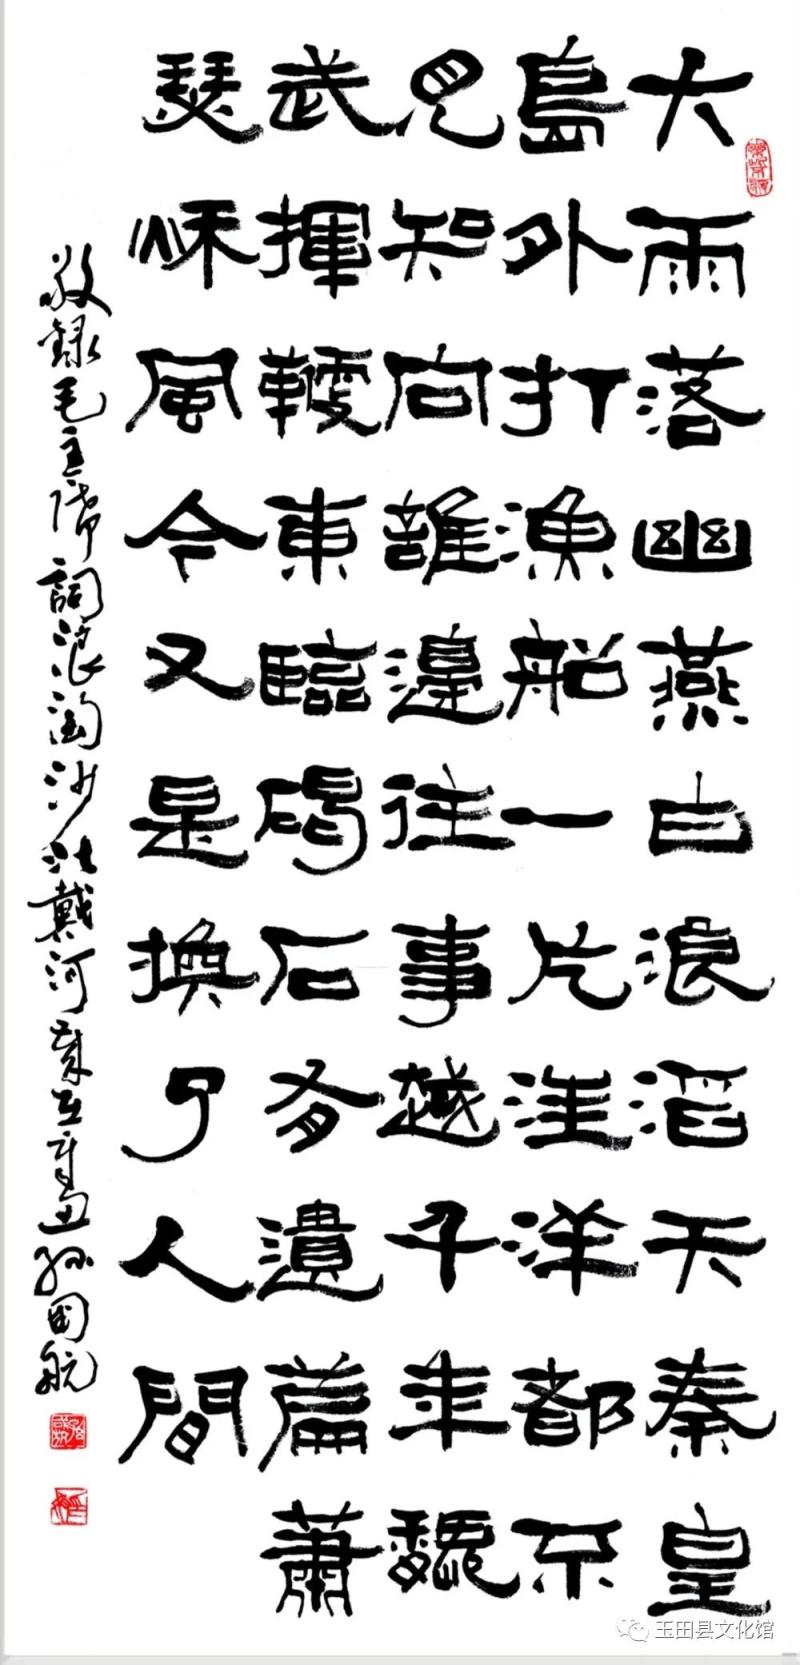 大雨落幽燕白浪滔天秦皇
島外打漁船一片汪洋都不
見知向誰邊往事越千年魏
武揮鞭東臨碣石有遺篇蕭
瑟秌風今又是換了人間
敬録毛主席詞浪淘沙北戴河歲在辛丑孫国航
玉田县文化馆